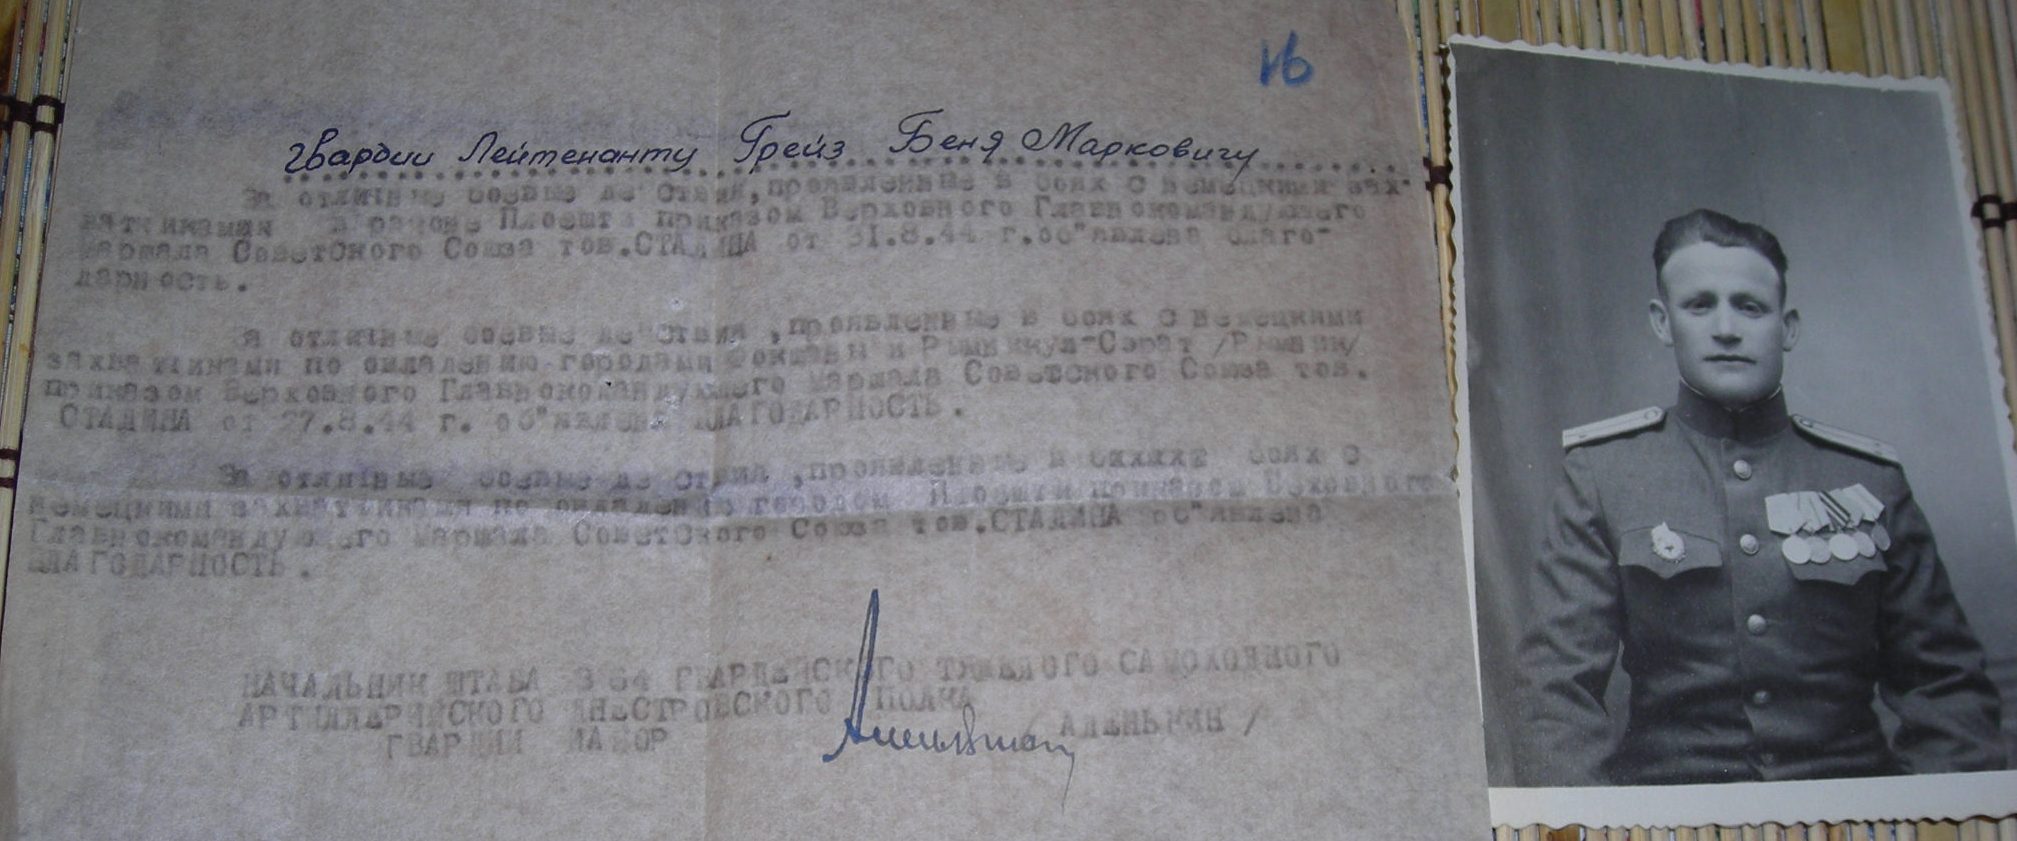 16
гвардии Лейтенанту Грейз Беня Марковичу
За отличные боевые действия, проявленные в боях с немецкими зах-
ватчиками в районе Плоешти приказом Верховного Главнокомандующего
Маршала Советского Союза тов.СТАЛИНА от 31.8.44 г.об"явлена благо-
дарность.
а отличные боевые действия ,проявленные в боях с немецкими
захватчиками по овладению городами Фокшаны и Рымникул-Сарат /Рымник/
приказом Верховного Главнокомандующего Маршала Советского Союза тов.
СТАЛИНА от 27.8.44 г. об"явлена БЛАГОДАРНОСТЬ.
За отличные боевые действия ,проявленные в боях с
немецкими захватчиками по овладению городом Плоешти приказом Верховного
Главнокомандующего Маршала Советского Союза тов.СТАЛИНА об"явлена
БЛАГОДАРНОСТЬ.
НАЧАЛЬНИК ШТАБА 364 ГВАРДЕЙСКОГО ТЯЖЕЛОГО САМОХОДНОГО
АРТИЛЛЕРИЙСКОГО ДНЕСТРОВСКОГО ПОЛКА
ГВАРДИИ МАЙОР / АЛЕНЬКИН /